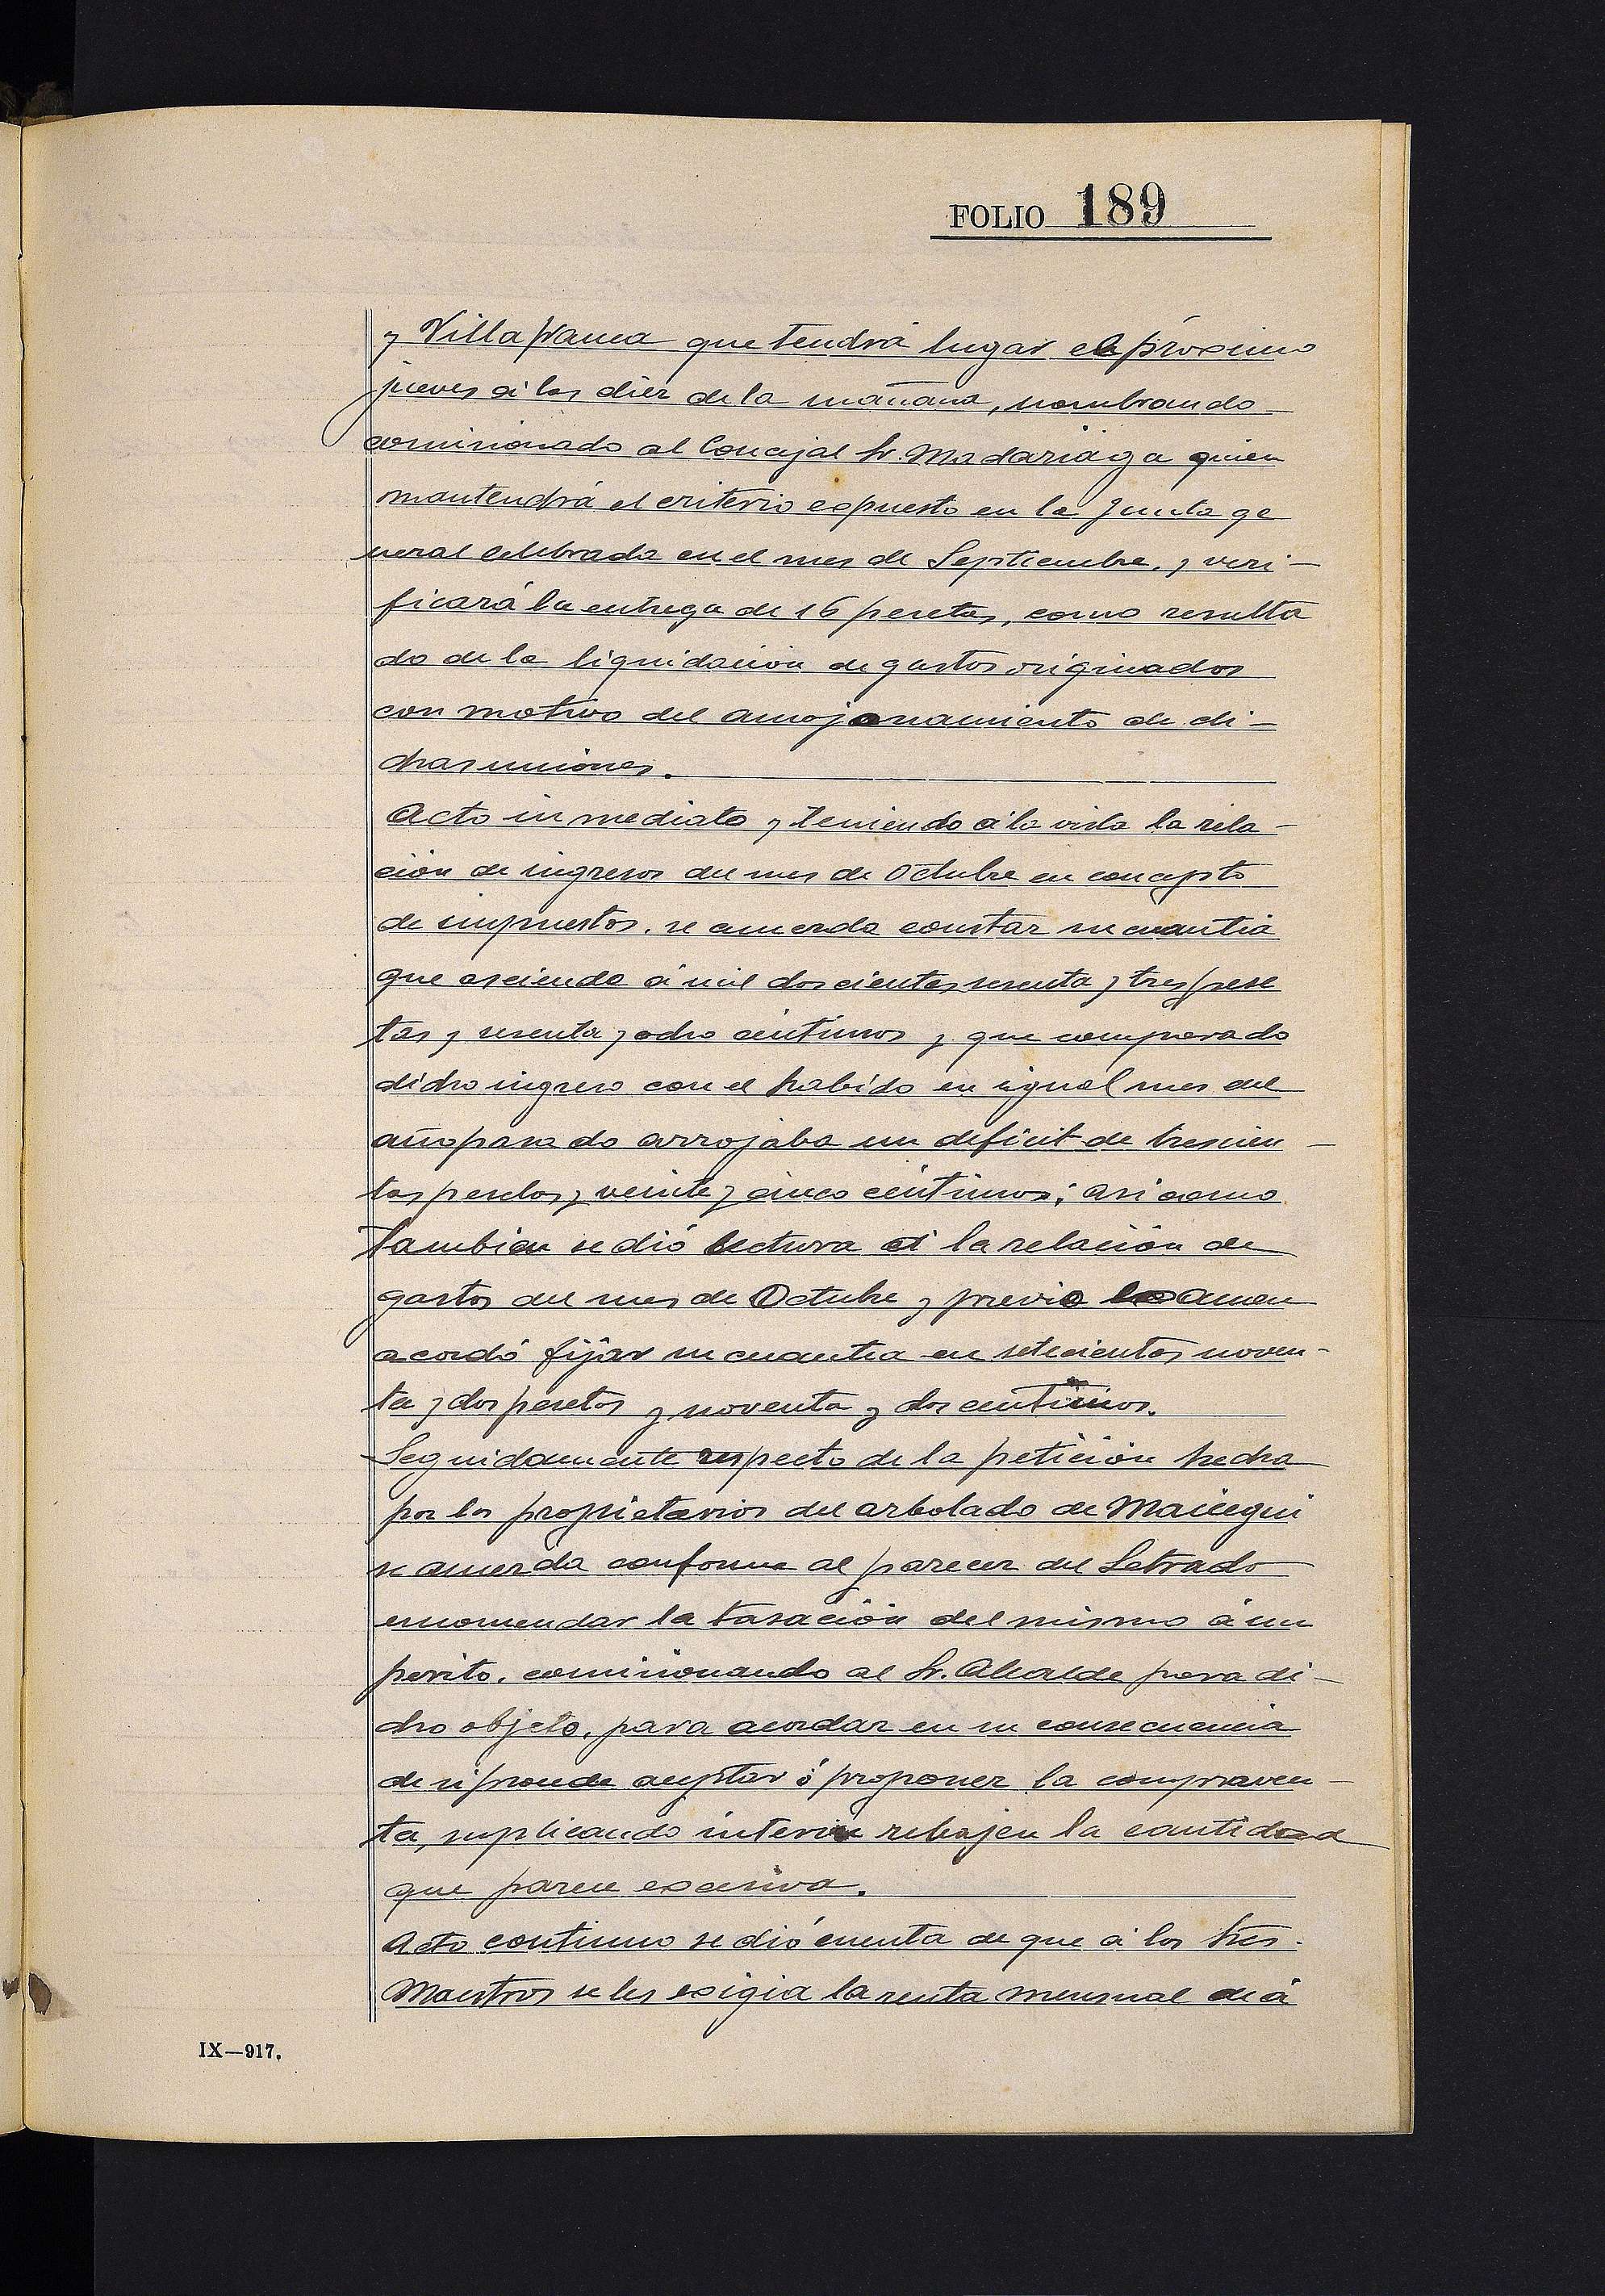 FOLIO 189
y Villafranca que tendrá lugar el próximo
jueves á las diez de la mañana, nombrando
comisionado al Concejal Sr. Madariaga quien
mantendrá el criterio expuesto en la Junta ge
neral celebrada en el mes de Septiembre, y veri-
ficará la entrega de 16 pesetas, como resulta
do de la liquidación de gastos originados
con motivo del amojonamiento de di-
chas uniones.
Acto inmediato y teniendo á la vista la rela-
ción de ingresos del mes de Octubre en concepto
de impuestos, se acuerda constar su cuantia
que asciende á mil doscientas sesenta y tres pese
tas y sesenta y ocho céntimos y que comparado
dicho ingreso con el habido en igual mes del
año pasado arrojaba un deficit de trescien-
tas pesetas y veinte y cinco céntimos; asi como
tambien se dió lectura á la relación de
gastos del mes de Octubre y previo examen
acordó fijar su cuantia en setecientas noven-
ta y dos pesetas y noventa y dos centimos.
Seguidamente respecto de la petición hecha
por los propietarios del arbolado de Mainegui
se acuerda conforme al parecer del Letrado
encomendar la tasación del mismo á un
perito, comisionando al Sr. Alcalde para di-
cho objeto, para acordar en su consecuencia
de si procede aceptar ó proponer la compraven-
ta, suplicando interin rebajen la cantidad
que parece excesiva.
Acto continuo se dió cuenta de que á los tres
Maestros se les exigia la renta mensual de á
IX—917.